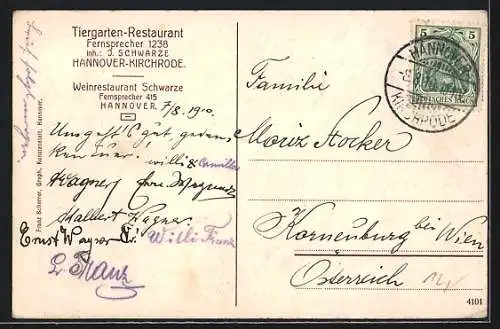 Tiergarten-Restaurant
Fernsprecher 1238
Inh.: J. SCHWARZE
HANNOVER-KIRCHRODE.
Weinrestaurant Schwarze
Fernsprecher 415
HANNOVER.
7/8. 1910.
Uns geht's gut, geden-
ken Euer. Willi & Camilla
Wagner
Wagner
Ernst Wagner Willi Franz
Franz
Franz Scherrer, Graph. Kunstanstalt, Hannover.
5 5
DEUTSCHES REICH
HANNOVER
KIRCHRODE
Familie
Moriz Hocker
Korneuburg bei Wien
Österreich
4101